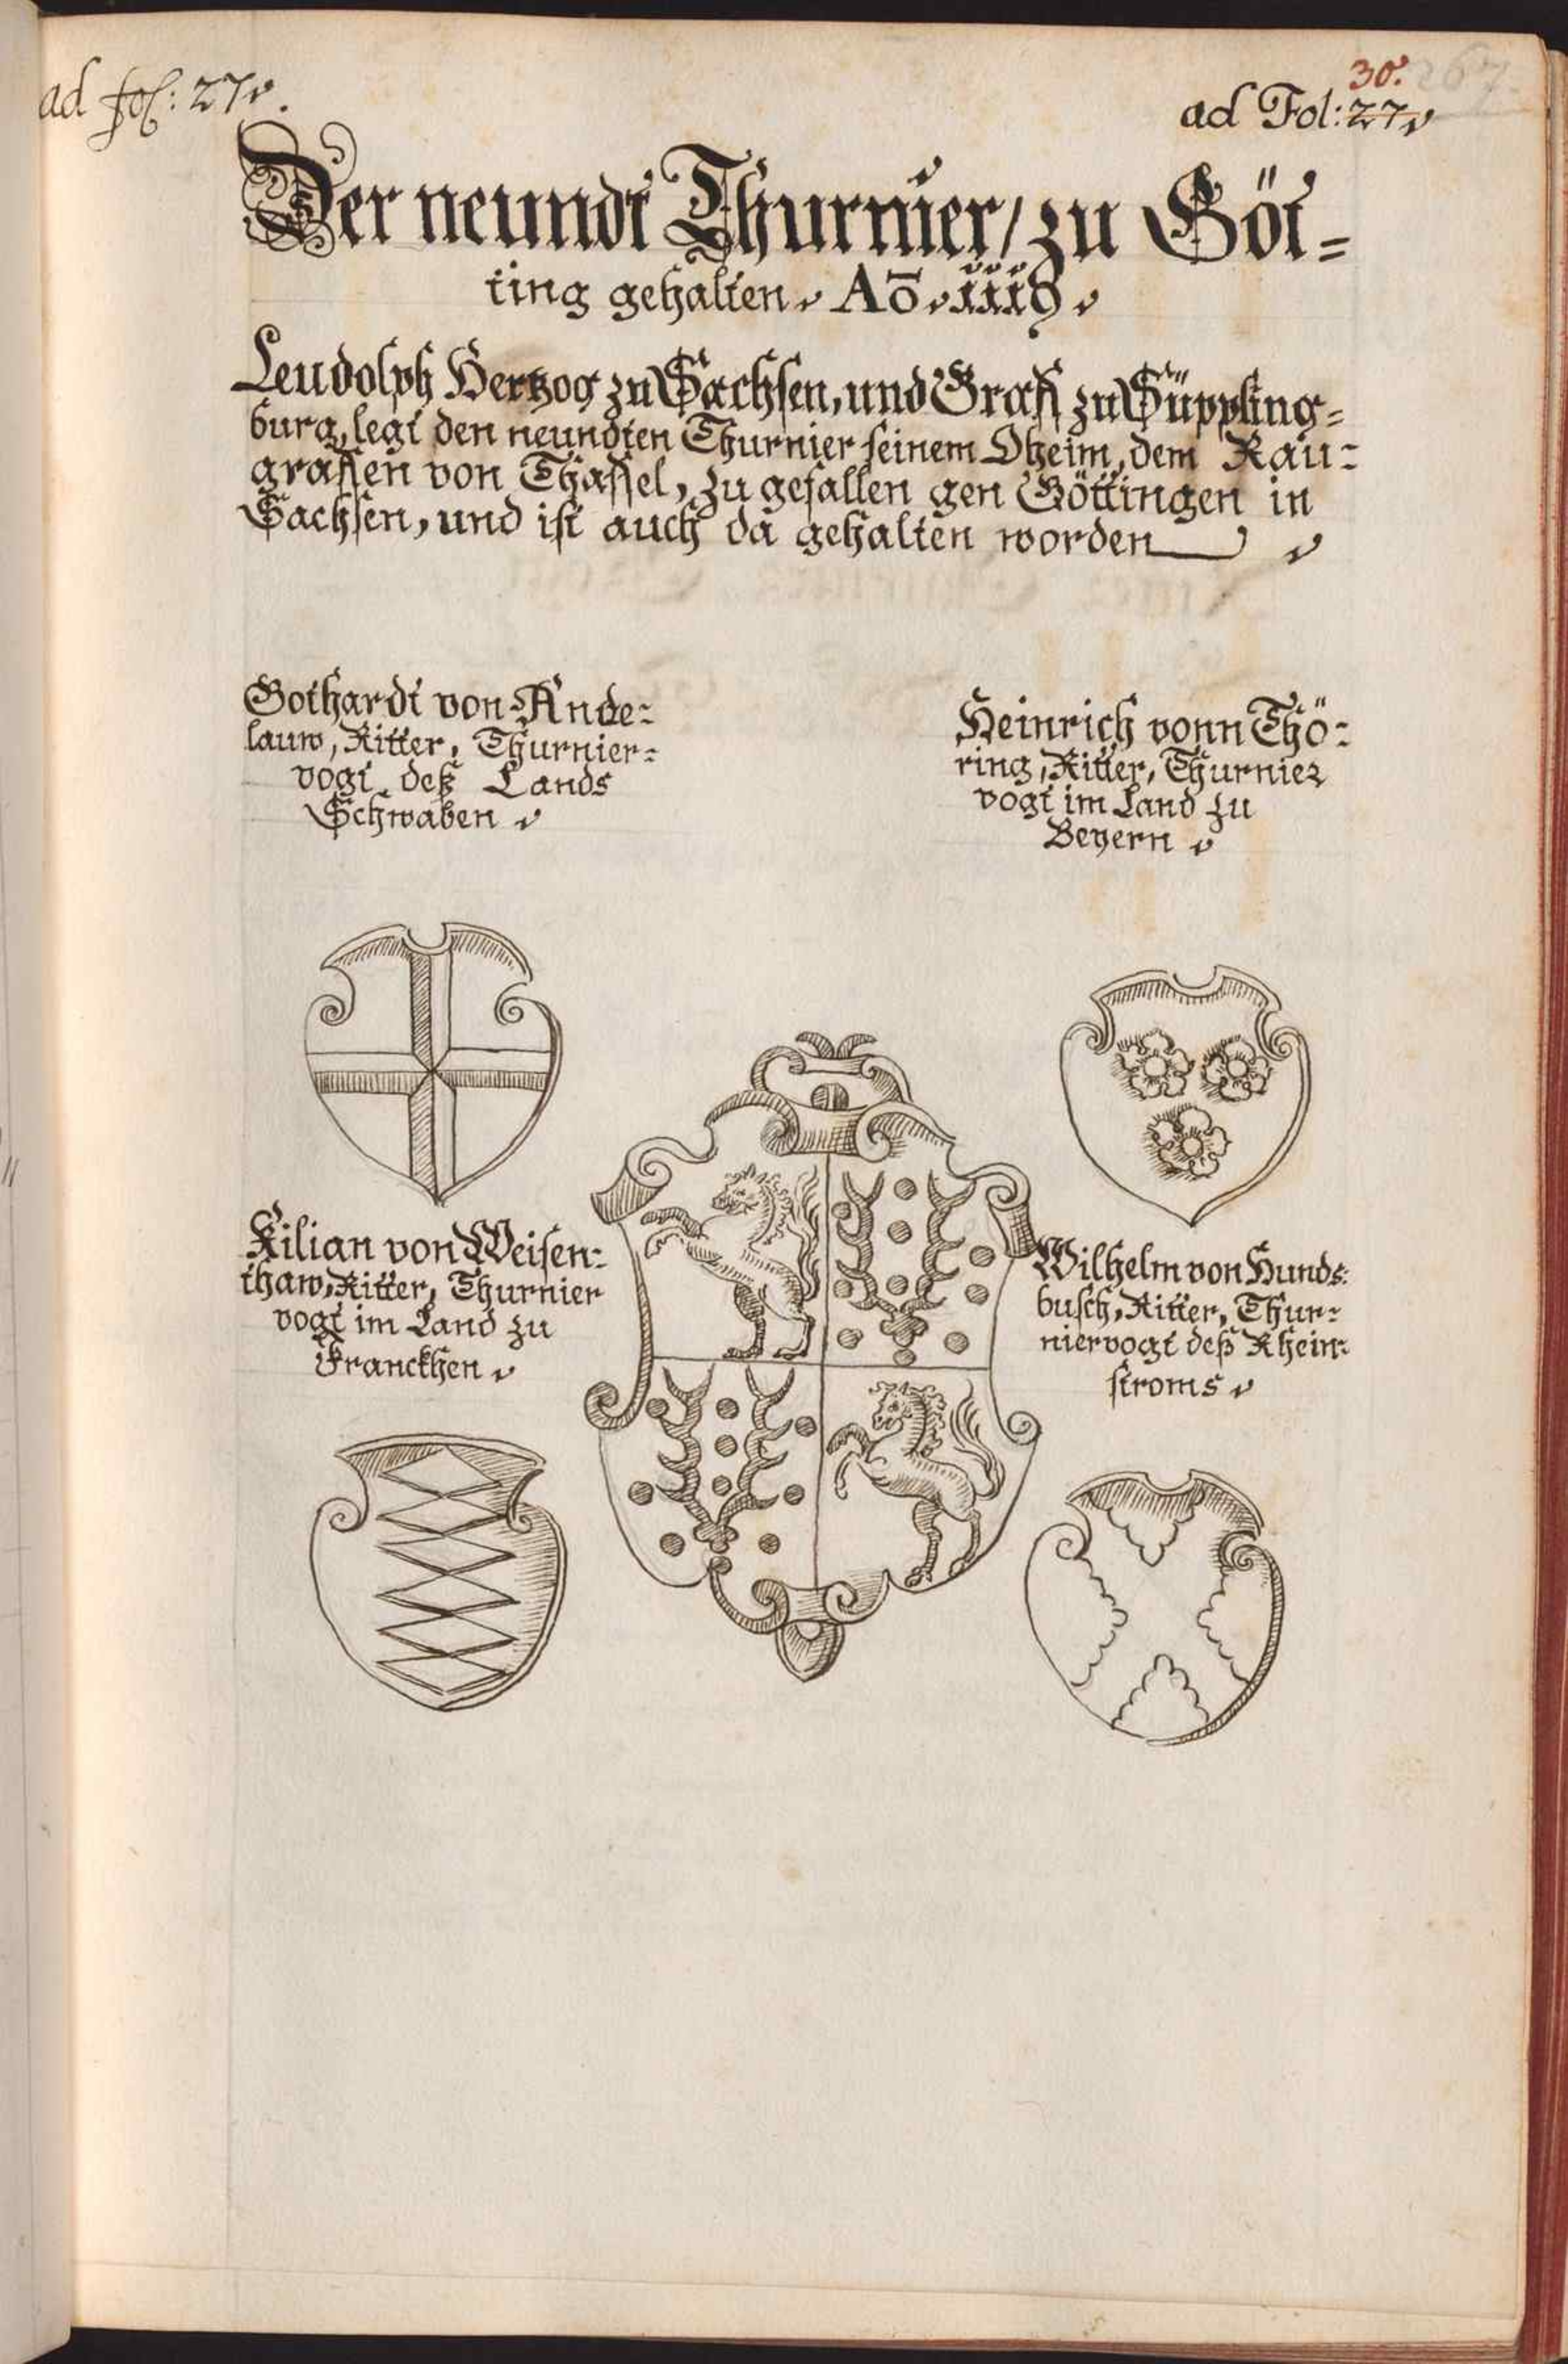 ad fol: 27.
30.
267.
ad Fol: 27
Der neundt Thurnier/zu Göt=
ting gehalten. Aō. iii9.
Leudolph Hertzog zu Sachsen, und Graff zu Süppling=
burg, legt den neundten Thurnier seinem Oheim, dem Rau=
graffen von Thassel, zu gefallen gen Göttingen in
Sachsen, und ist auch da gehalten worden
Gothardt von Ande=
lauw, Ritter, Thurnier=
vogt deß Lands
Schwaben
Heinrich vonn Thö=
ring, Ritter, Thurnier
vogt im Land zu
Beyern
Kilian von Weisen=
thaw, Ritter, Thurnier
vogt im Land zu
Franckhen
Wilhelm von Hunds=
busch, Ritter, Thur=
niervogt deß Rhein=
stroms